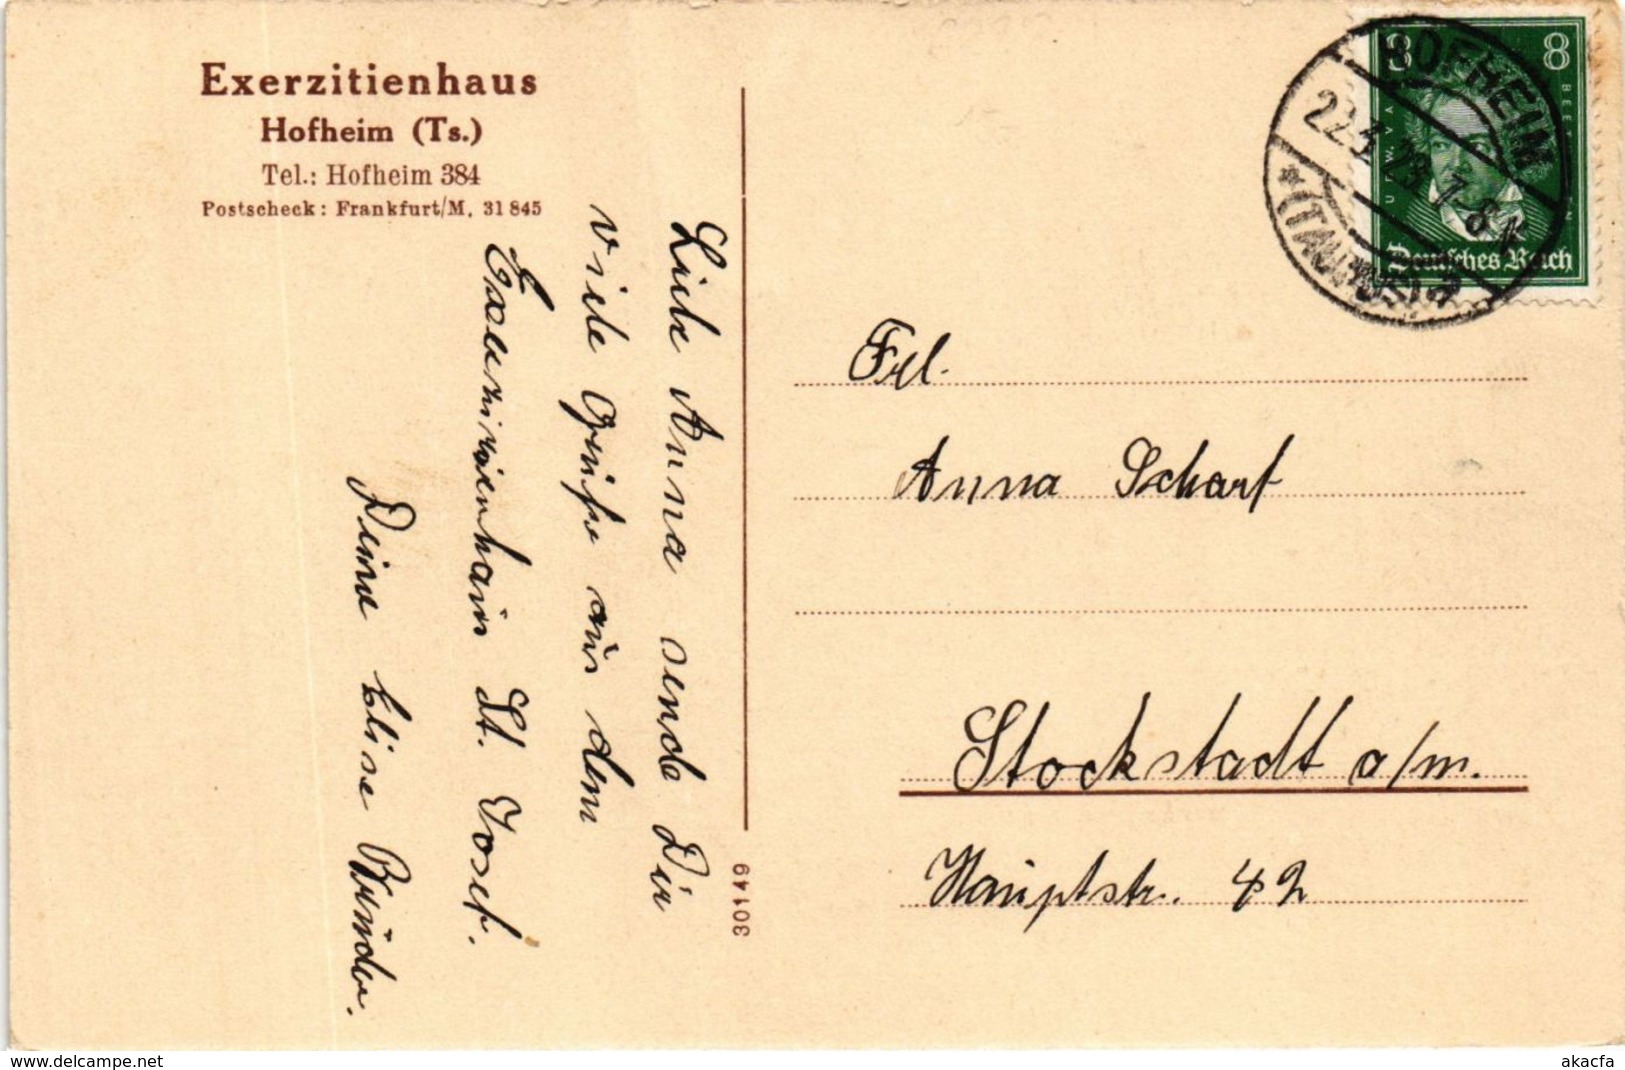 Exerzitienhaus
Hofheim (Ts.)
Tel.: Hofheim 384
Postscheck: Frankfurt/M. 31 845
Liebe Anna sende Dir
viele Grüße aus dem
Exerzitienhaus St. Josef.
Deine Elise
30149
8 8
HOFHEIM
(TAUNUS) a
Deutsches Reich
Frl.
Anna Scharf
Stockstadt a/m.
Hauptstr. 42
akpool.com
akacfa